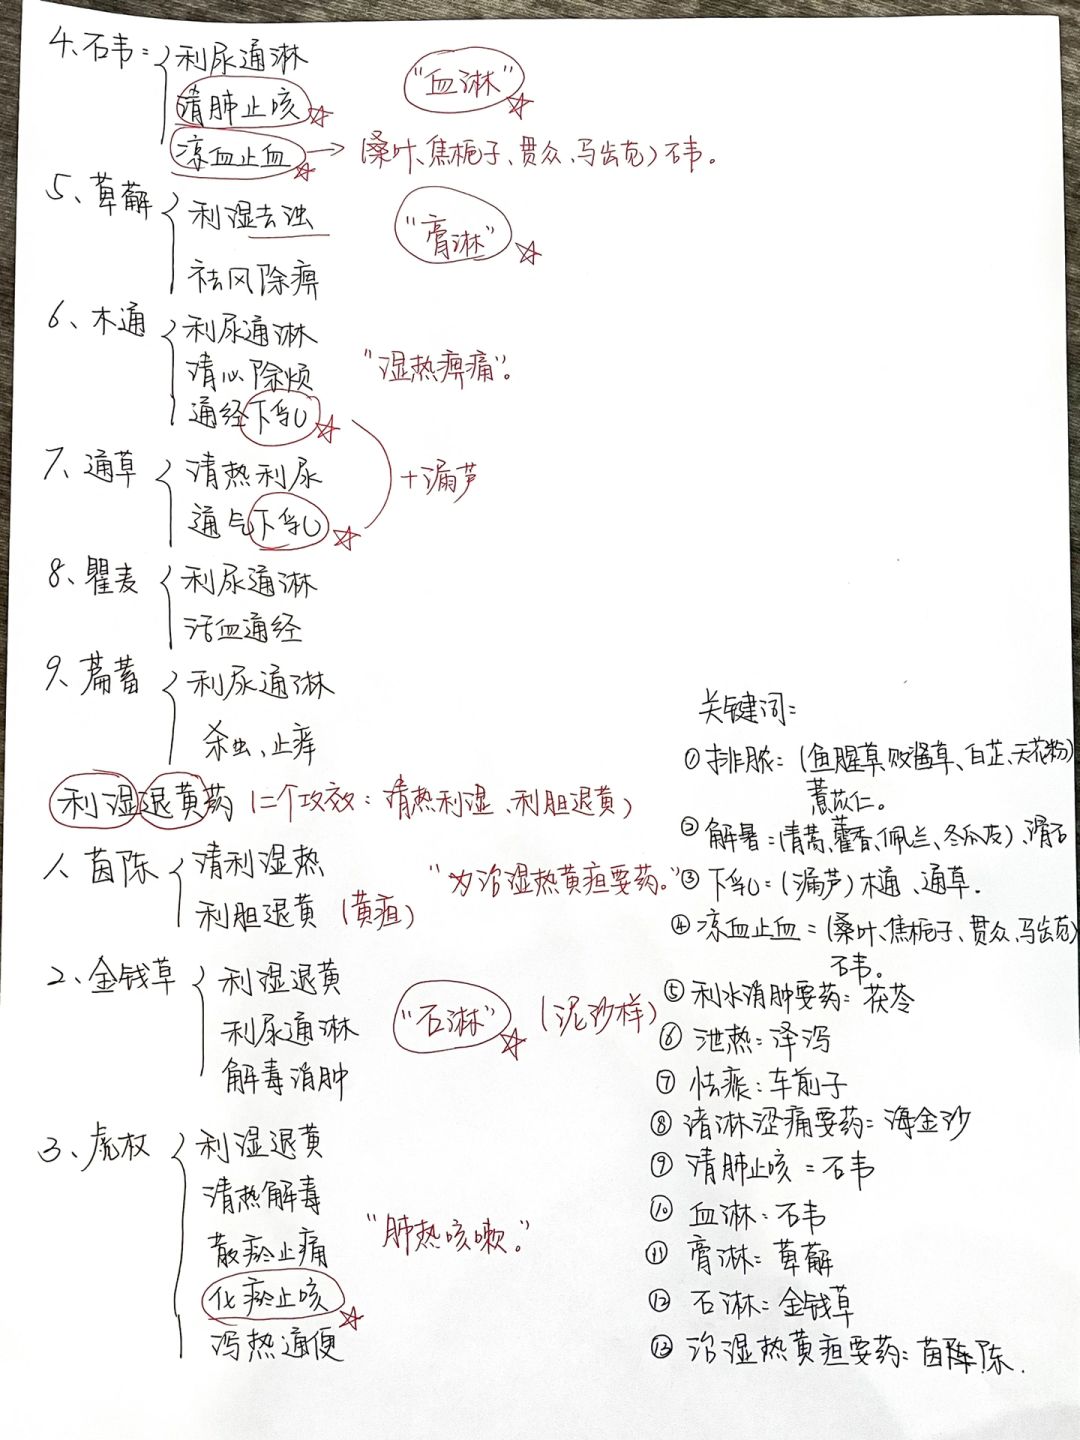 4、石韦：利尿通淋
"血淋"
清肺止咳☆
凉血止血☆→(桑叶、焦栀子、贯众、马齿苋)石韦。
5、萆薢 利湿去浊
"膏淋"☆
祛风除痹
6、木通 利尿通淋
清心除烦 "湿热痹痛"。
通经下乳☆
7、通草 清热利尿 +漏芦
通气下乳☆
8、瞿麦 利尿通淋
活血通经
9、萹蓄 利尿通淋
杀虫、止痒
利湿退黄药(二个功效：清热利湿、利胆退黄)
1、茵陈 清利湿热 "为治湿热黄疸要药。"
利胆退黄(黄疸)
2、金钱草 利湿退黄
利尿通淋 "石淋"☆(泥沙样)
解毒消肿
3、虎杖 利湿退黄
清热解毒
散瘀止痛 "肺热咳嗽。"
化痰止咳☆
泻热通便
关键词：
①排脓：(鱼腥草、败酱草、白芷、天花粉)
薏苡仁。
②解暑：(青蒿、藿香、佩兰、冬瓜皮)、滑石
③下乳：(漏芦)木通、通草.
④凉血止血=(桑叶、焦栀子、贯众、马齿苋)
石韦。
⑤利水消肿要药：茯苓
⑥泄热：泽泻
⑦祛痰：车前子
⑧诸淋涩痛要药：海金沙
⑨清肺止咳=石韦
⑩血淋：石韦
⑪膏淋：萆薢
⑫石淋：金钱草
⑬治湿热黄疸要药：茵陈.